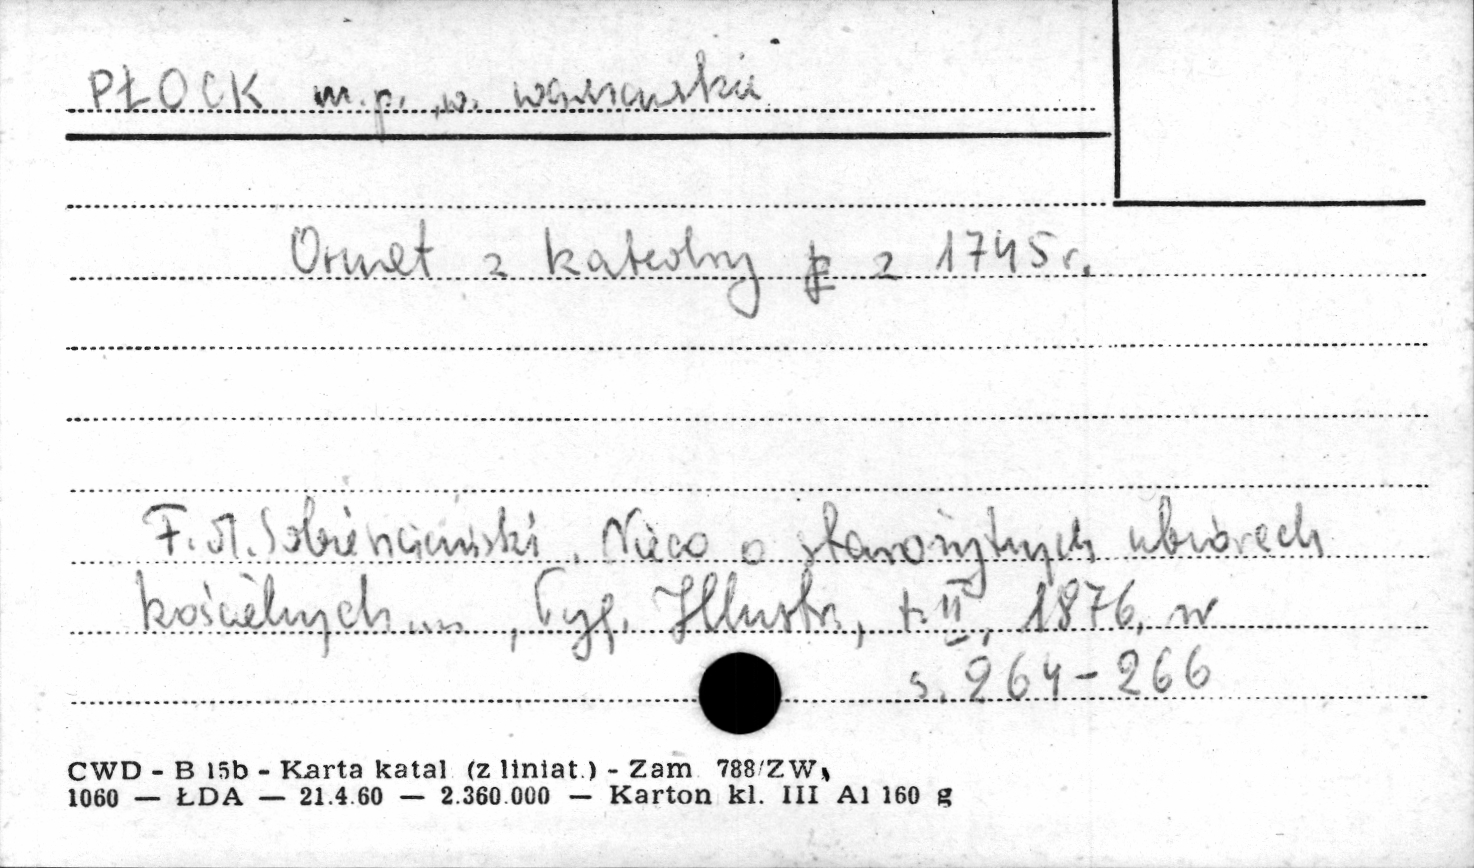 PŁOCK m.p. w. warszawskie
Ornat z katedry z 1745 r.
F. M. Sobieszczański. Nieco o starożytnych ubiorach
kościelnych ..., Tyg. Illustr., t. II, 1876, nr
s. 264-266
CWD - B 15b - Karta katal. (z liniat.) - Zam 788/ZW
1060 — ŁDA — 21.4.60 — 2.360.000 — Karton kl. III A1 160 g